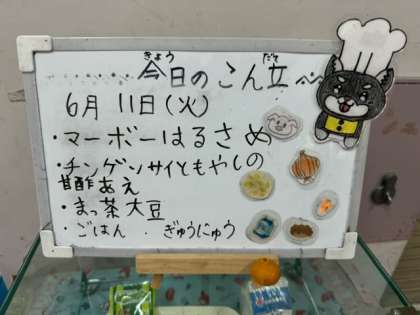 今日のこん立
きょう だて
6月 11日(火)
・マーボーはるさめ
・チンゲンサイともやしの
甘酢あえ
・まっ茶大豆
・ごはん ・ぎゅうにゅう